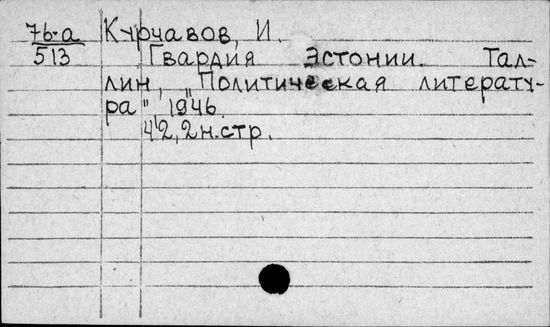 7б-а Курчавов, И.
513 Гвардия Эстонии. Тал-
лин, „Политическая литерату-
ра" 1946.
42, 2 н. стр.